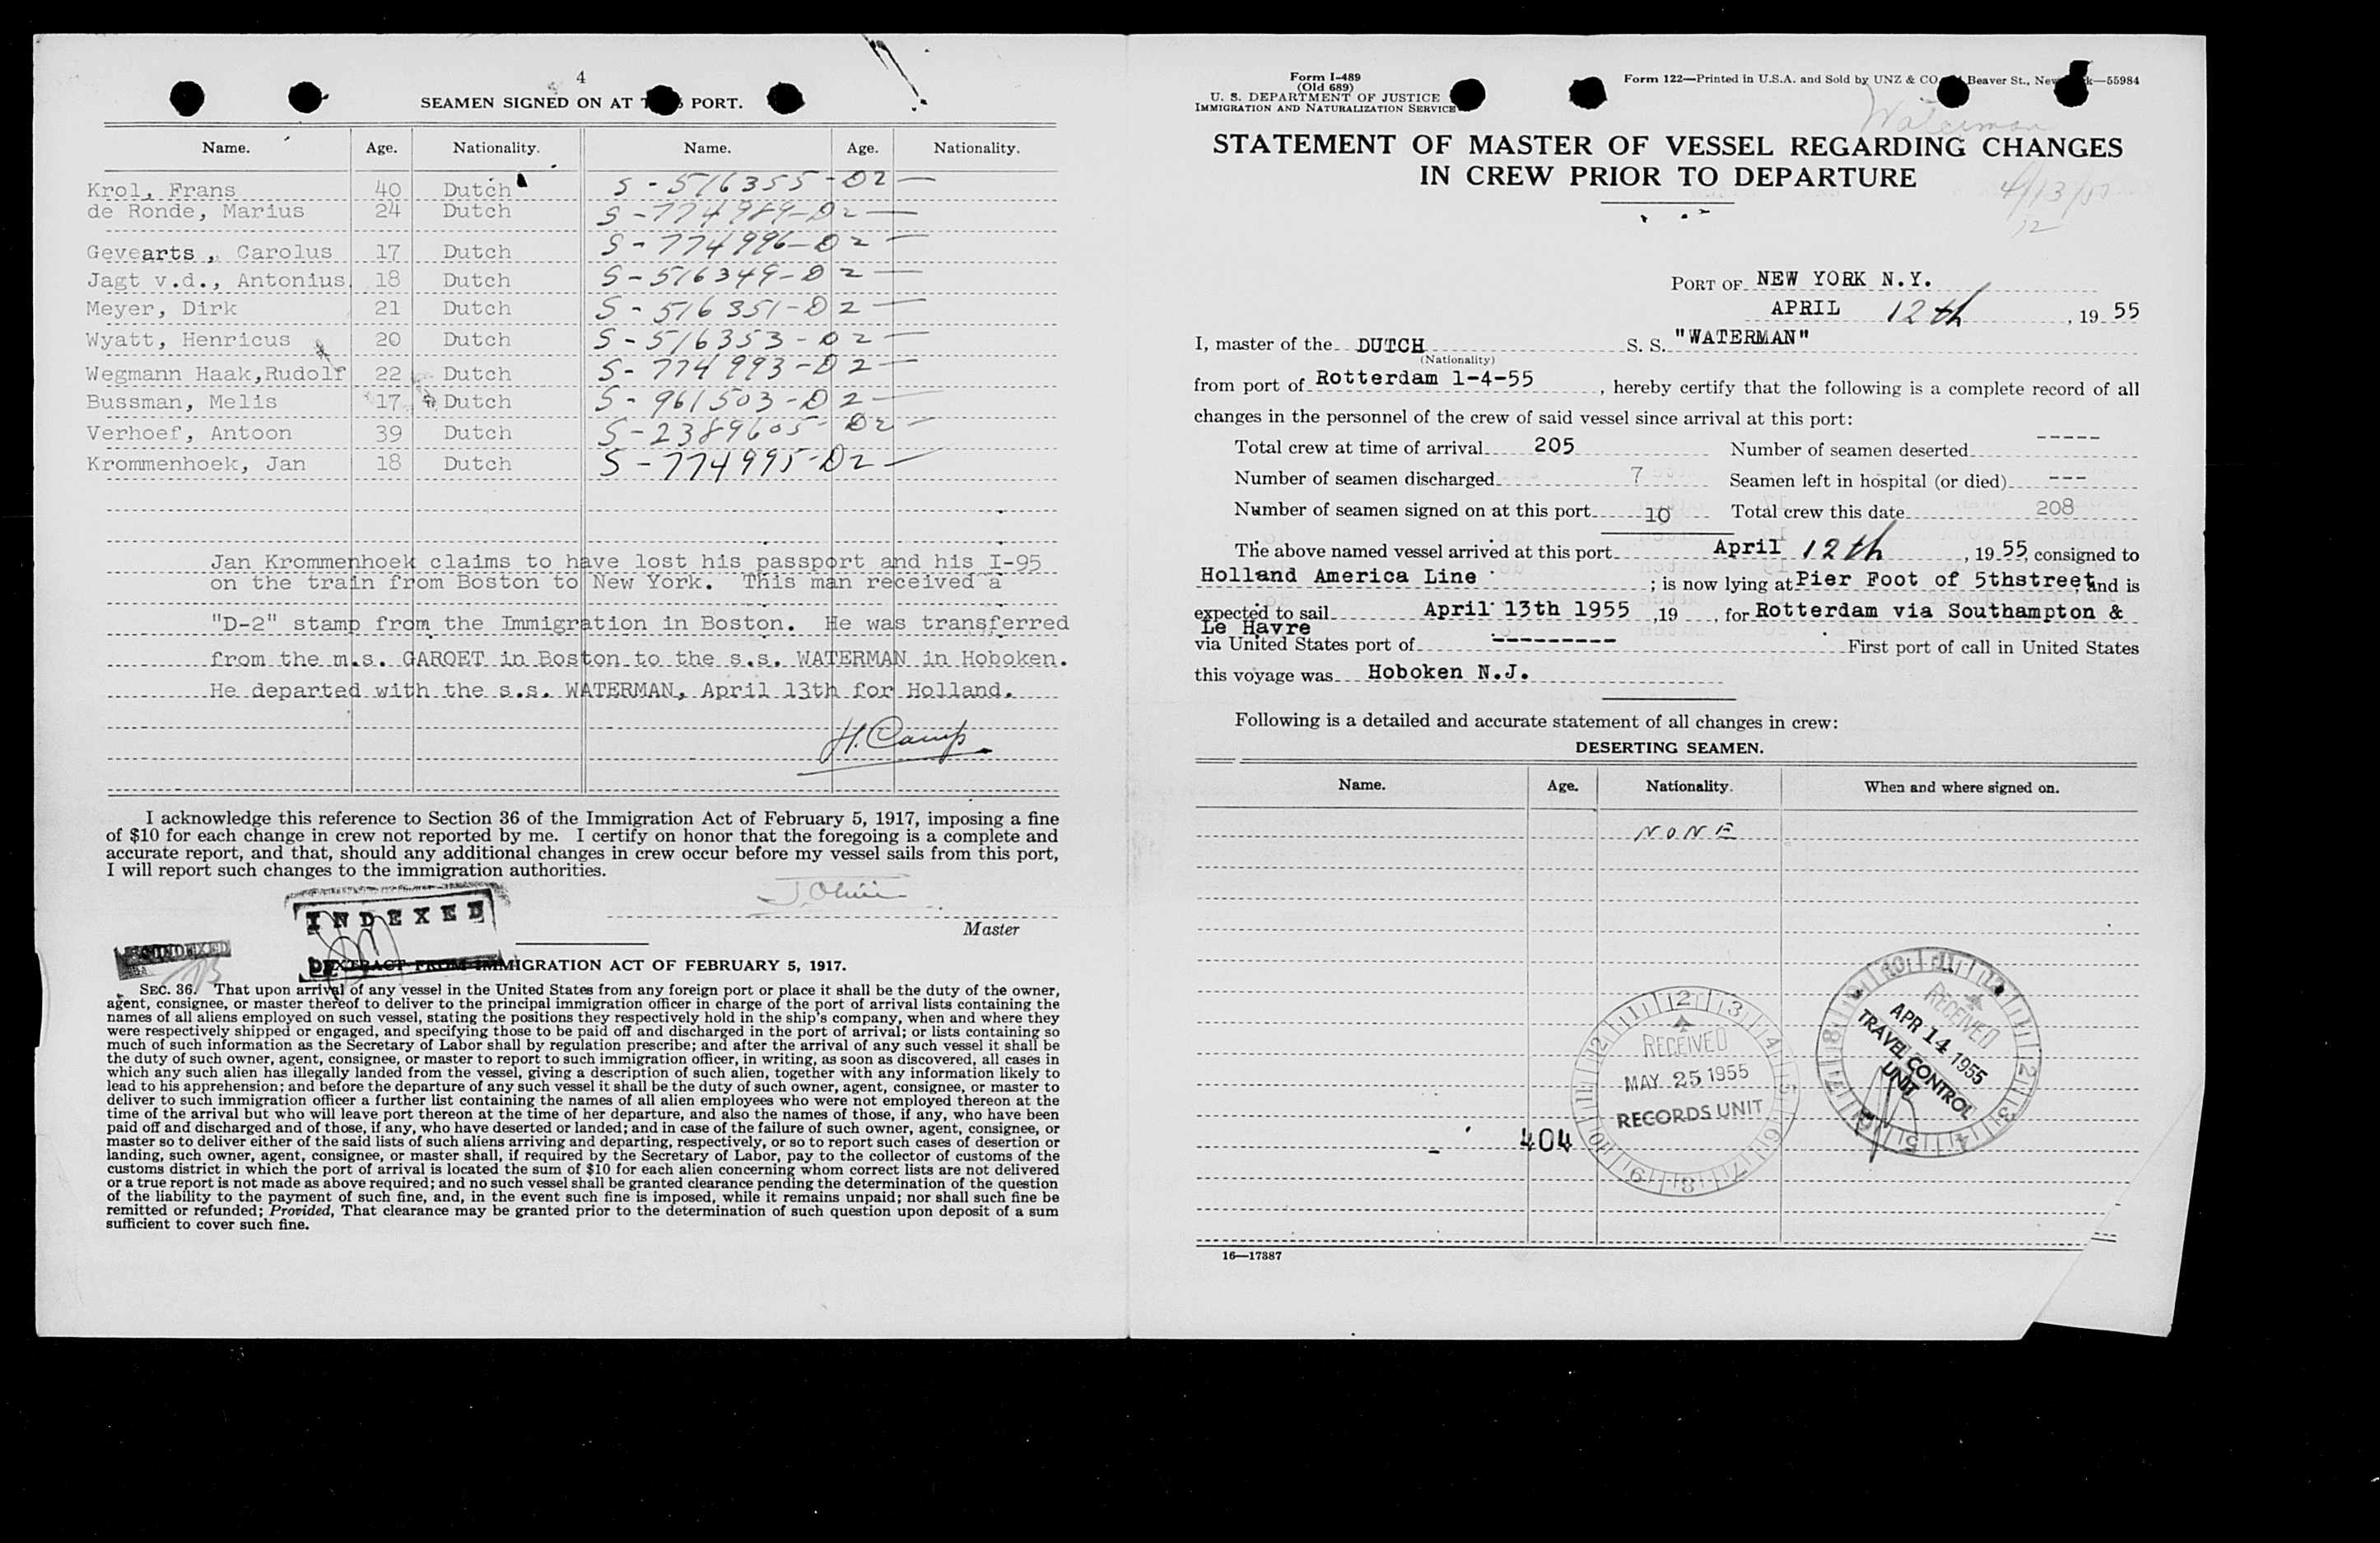 4
SEAMEN SIGNED ON AT PORT.
Name. Age. Nationality. Name. Age. Nationality.
Krol, Frans 40 Dutch S-516355-D2
de Ronde, Marius 24 Dutch S-774989-D2
Gevearts, Carolus 17 Dutch S-774996-D2
Jagt v.d., Antonius 18 Dutch S-516349-D2
Meyer, Dirk 21 Dutch S-516351-D2
Wyatt, Henricus 20 Dutch S-516353-D2
Wegmann Haak,Rudolf 22 Dutch S-774993-D2
Bussman, Melis 17 Dutch S-961503-D2
Verhoef, Antoon 39 Dutch S-2389605-D2
Krommenhoek, Jan 18 Dutch S-774995-D2
Jan Krommenhoek claims to have lost his passport and his I-95
on the train from Boston to New York. This man received a
"D-2" stamp from the Immigration in Boston. He was transferred
from the m.s. GAROET in Boston to the s.s. WATERMAN in Hoboken.
He departed with the s.s. WATERMAN, April 13th for Holland.
H. Camp
I acknowledge this reference to Section 36 of the Immigration Act of February 5, 1917, imposing a fine
of $10 for each change in crew not reported by me. I certify on honor that the foregoing is a complete and
accurate report, and that, should any additional changes in crew occur before my vessel sails from this port,
I will report such changes to the immigration authorities.
INDEXED
Master
EXTRACT FROM IMMIGRATION ACT OF FEBRUARY 5, 1917.
SEC. 36. That upon arrival of any vessel in the United States from any foreign port or place it shall be the duty of the owner,
agent, consignee, or master thereof to deliver to the principal immigration officer in charge of the port of arrival lists containing the
names of all aliens employed on such vessel, stating the positions they respectively hold in the ship's company, when and where they
were respectively shipped or engaged, and specifying those to be paid off and discharged in the port of arrival; or lists containing so
much of such information as the Secretary of Labor shall by regulation prescribe; and after the arrival of any such vessel it shall be
the duty of such owner, agent, consignee, or master to report to such immigration officer, in writing, as soon as discovered, all cases in
which any such alien has illegally landed from the vessel, giving a description of such alien, together with any information likely to
lead to his apprehension; and before the departure of any such vessel it shall be the duty of such owner, agent, consignee, or master to
deliver to such immigration officer a further list containing the names of all alien employees who were not employed thereon at the
time of the arrival but who will leave port thereon at the time of her departure, and also the names of those, if any, who have been
paid off and discharged and of those, if any, who have deserted or landed; and in case of the failure of such owner, agent, consignee, or
master so to deliver either of the said lists of such aliens arriving and departing, respectively, or so to report such cases of desertion or
landing, such owner, agent, consignee, or master shall, if required by the Secretary of Labor, pay to the collector of customs of the
customs district in which the port of arrival is located the sum of $10 for each alien concerning whom correct lists are not delivered
or a true report is not made as above required; and no such vessel shall be granted clearance pending the determination of the question
of the liability to the payment of such fine, and, in the event such fine is imposed, while it remains unpaid; nor shall such fine be
remitted or refunded; Provided, That clearance may be granted prior to the determination of such question upon deposit of a sum
sufficient to cover such fine.
Form I-489
(Old 689)
U. S. DEPARTMENT OF JUSTICE
IMMIGRATION AND NATURALIZATION SERVICE
Form 122—Printed in U.S.A. and Sold by UNZ & CO Beaver St., —55984
Waterman
STATEMENT OF MASTER OF VESSEL REGARDING CHANGES
IN CREW PRIOR TO DEPARTURE
4/13/55
12
PORT OF NEW YORK N.Y.
APRIL 12th, 19 55
I, master of the DUTCH S. S. "WATERMAN"
(Nationality)
from port of Rotterdam 1-4-55, hereby certify that the following is a complete record of all
changes in the personnel of the crew of said vessel since arrival at this port:
Total crew at time of arrival 205 Number of seamen deserted -----
Number of seamen discharged 7 Seamen left in hospital (or died) ---
Number of seamen signed on at this port 10 Total crew this date 208
The above named vessel arrived at this port April 12th, 19 55, consigned to
Holland America Line; is now lying at Pier Foot of 5thstreet, and is
expected to sail April 13th 1955, 19 , for Rotterdam via Southampton &
Le Havre
via United States port of --------- First port of call in United States
this voyage was Hoboken N.J.
Following is a detailed and accurate statement of all changes in crew:
DESERTING SEAMEN.
Name. Age. Nationality. When and where signed on.
NONE
RECEIVED
MAY 25 1955
RECORDS UNIT
RECEIVED
APR 14 1955
TRAVEL CONTROL
UNIT
404
16—17387